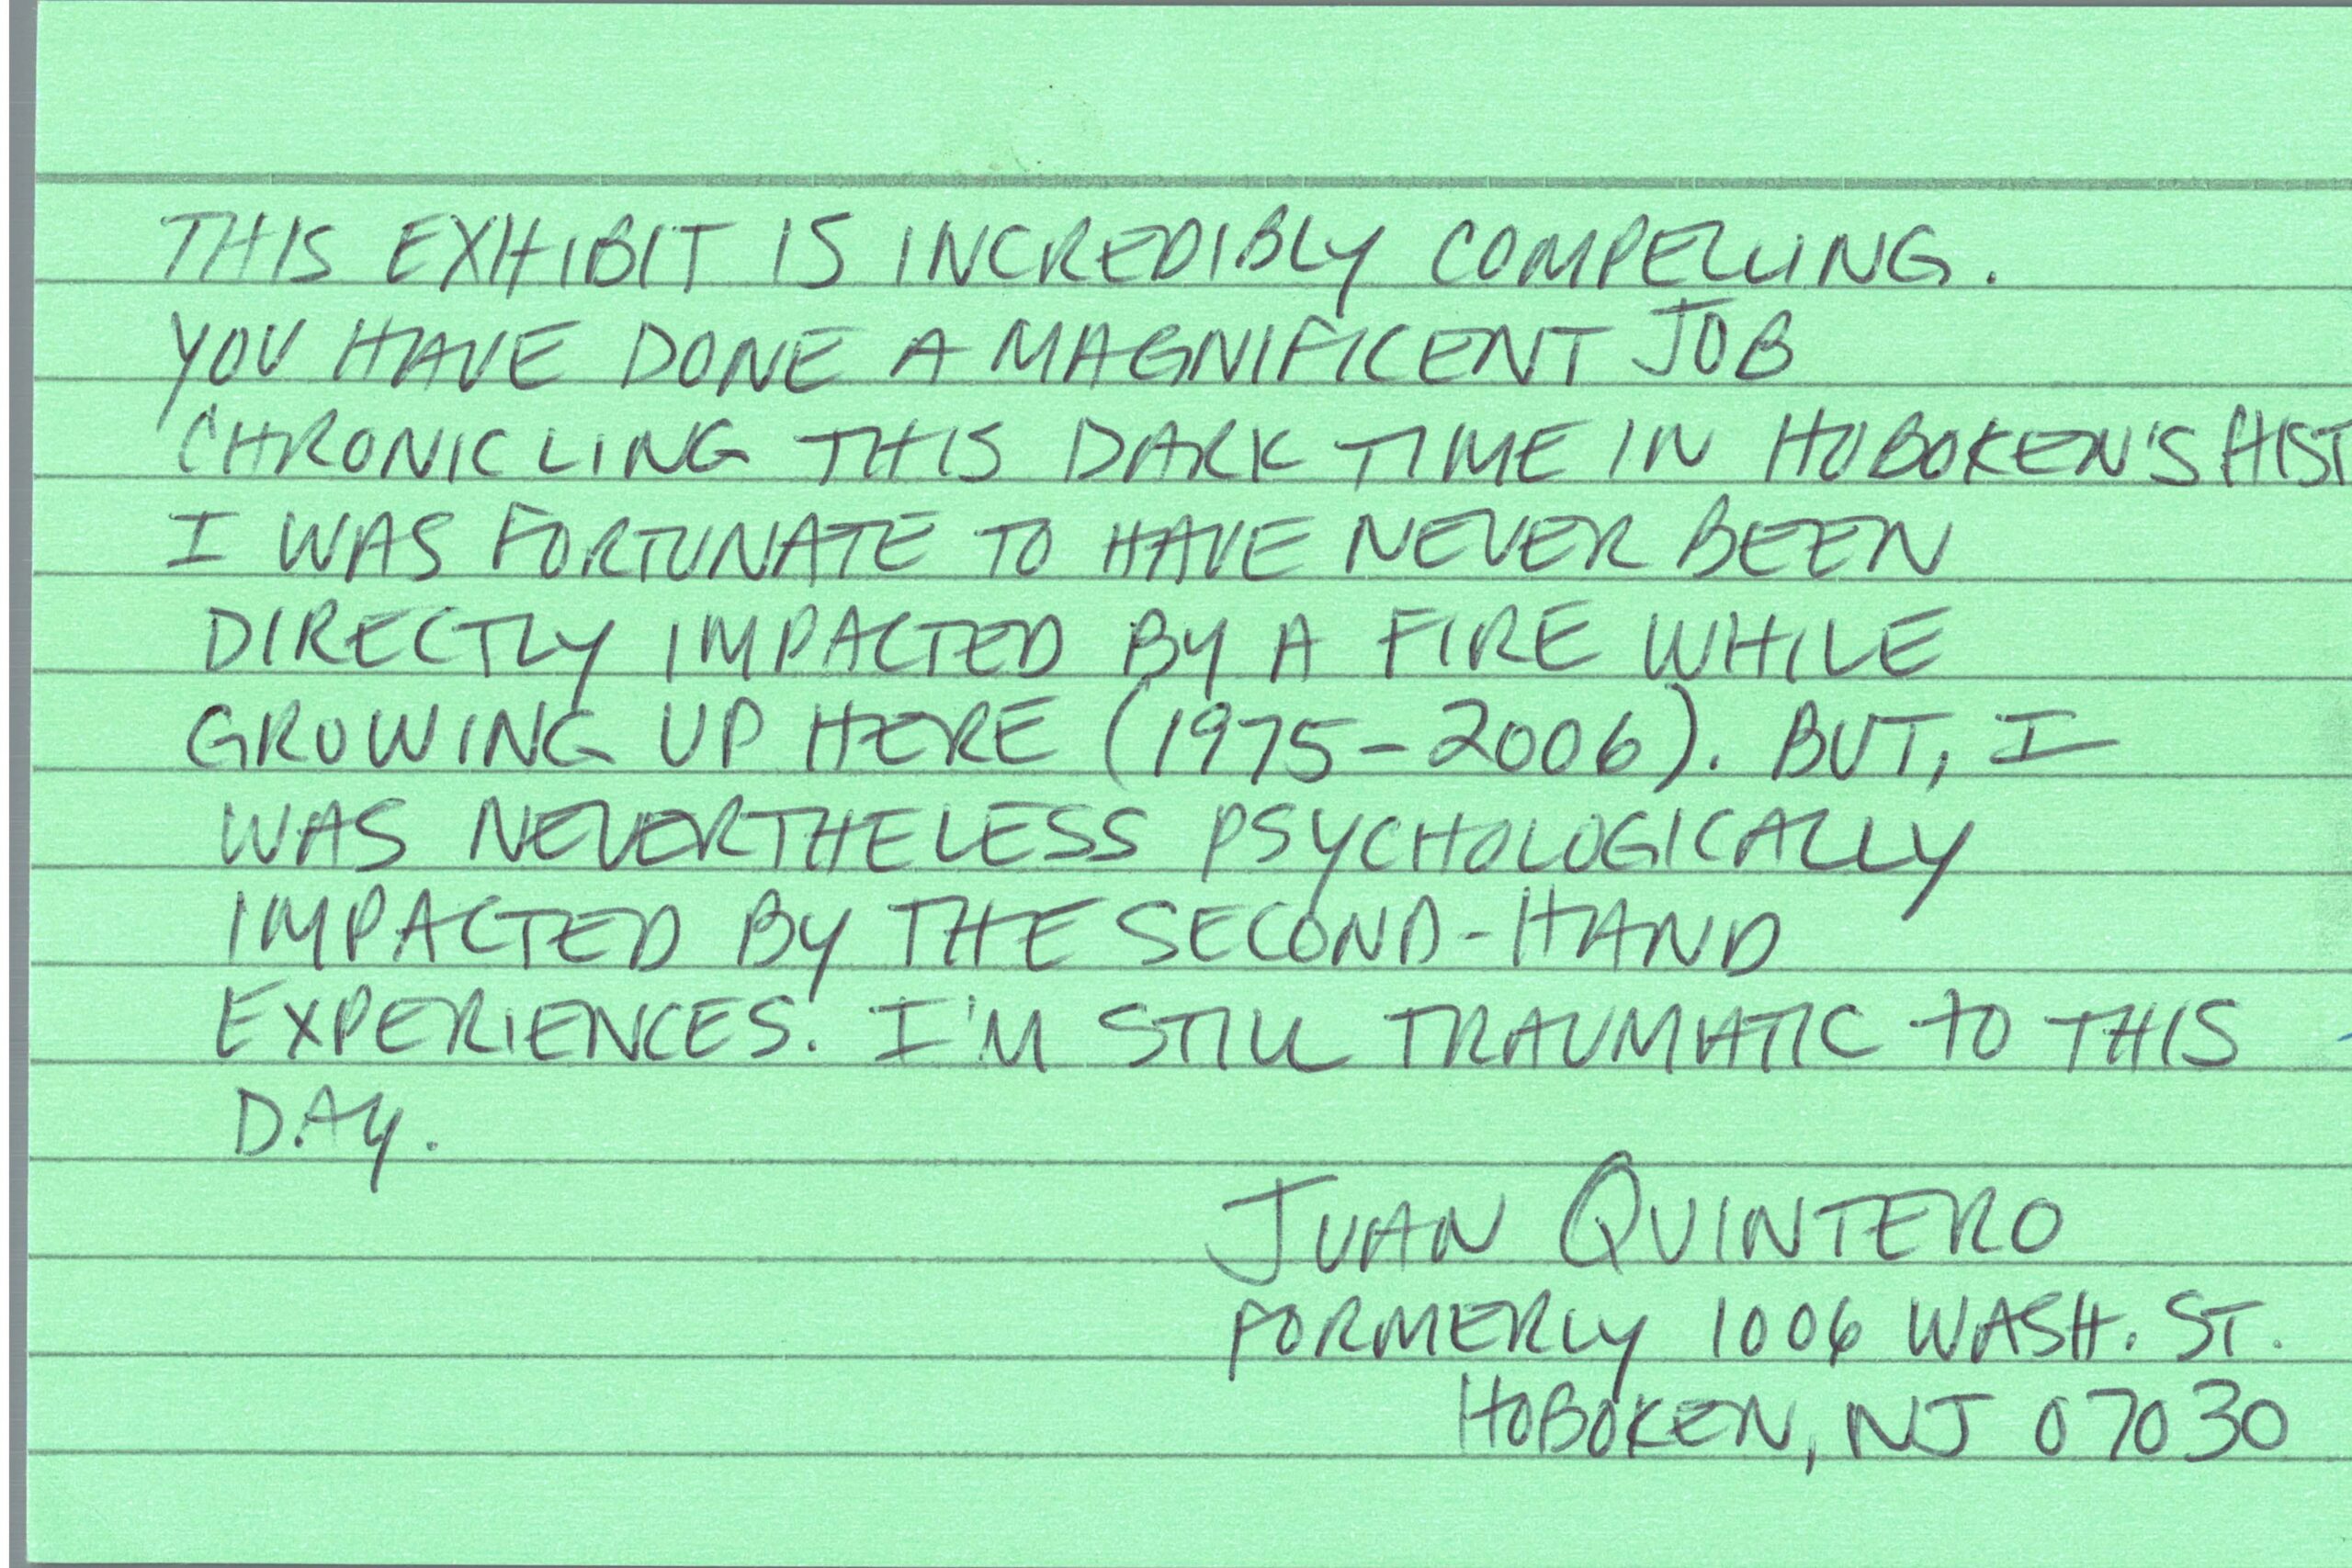 THIS EXHIBIT IS INCREDIBLY COMPELLING.
YOU HAVE DONE A MAGNIFICENT JOB
CHRONICLING THIS DARK TIME IN HOBOKEN'S HIST
I WAS FORTUNATE TO HAVE NEVER BEEN
DIRECTLY IMPACTED BY A FIRE WHILE
GROWING UP HERE (1975-2006). BUT, I
WAS NEVERTHELESS PSYCHOLOGICALLY
IMPACTED BY THE SECOND-HAND
EXPERIENCES. I'M STILL TRAUMATIC TO THIS
DAY.
JUAN QUINTERO
FORMERLY 1006 WASH. ST.
HOBOKEN, NJ 07030